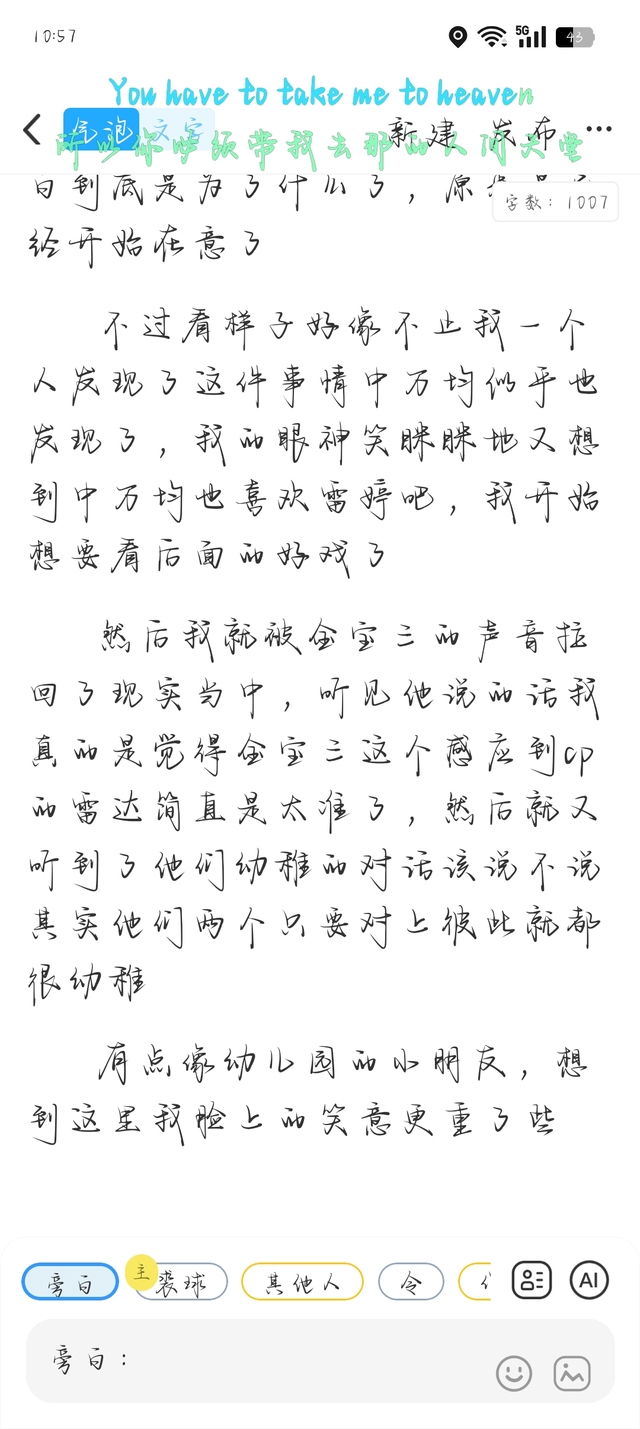 10:57
5G
43
You have to take me to heaven
气泡
文字
新建
发布
所以你必须带我去那的人间天堂
字数：1007
白到底是为了什么了，原
经开始在意了
不过看样子好像不止我一个
人发现了这件事情中万均似乎也
发现了，我的眼神笑眯眯地又想
到中万均也喜欢雷婷吧，我开始
想要看后面的好戏了
然后我就被金宝三的声音拉
回了现实当中，听见他说的话我
真的是觉得金宝三这个感应到cp
的雷达简直是太准了，然后就又
听到了他们幼稚的对话该说不说
其实他们两个只要对上彼此就都
很幼稚
有点像幼儿园的小朋友，想
到这里我脸上的笑意更重了些
旁白
主
裘球
其他人
令
AI
旁白：